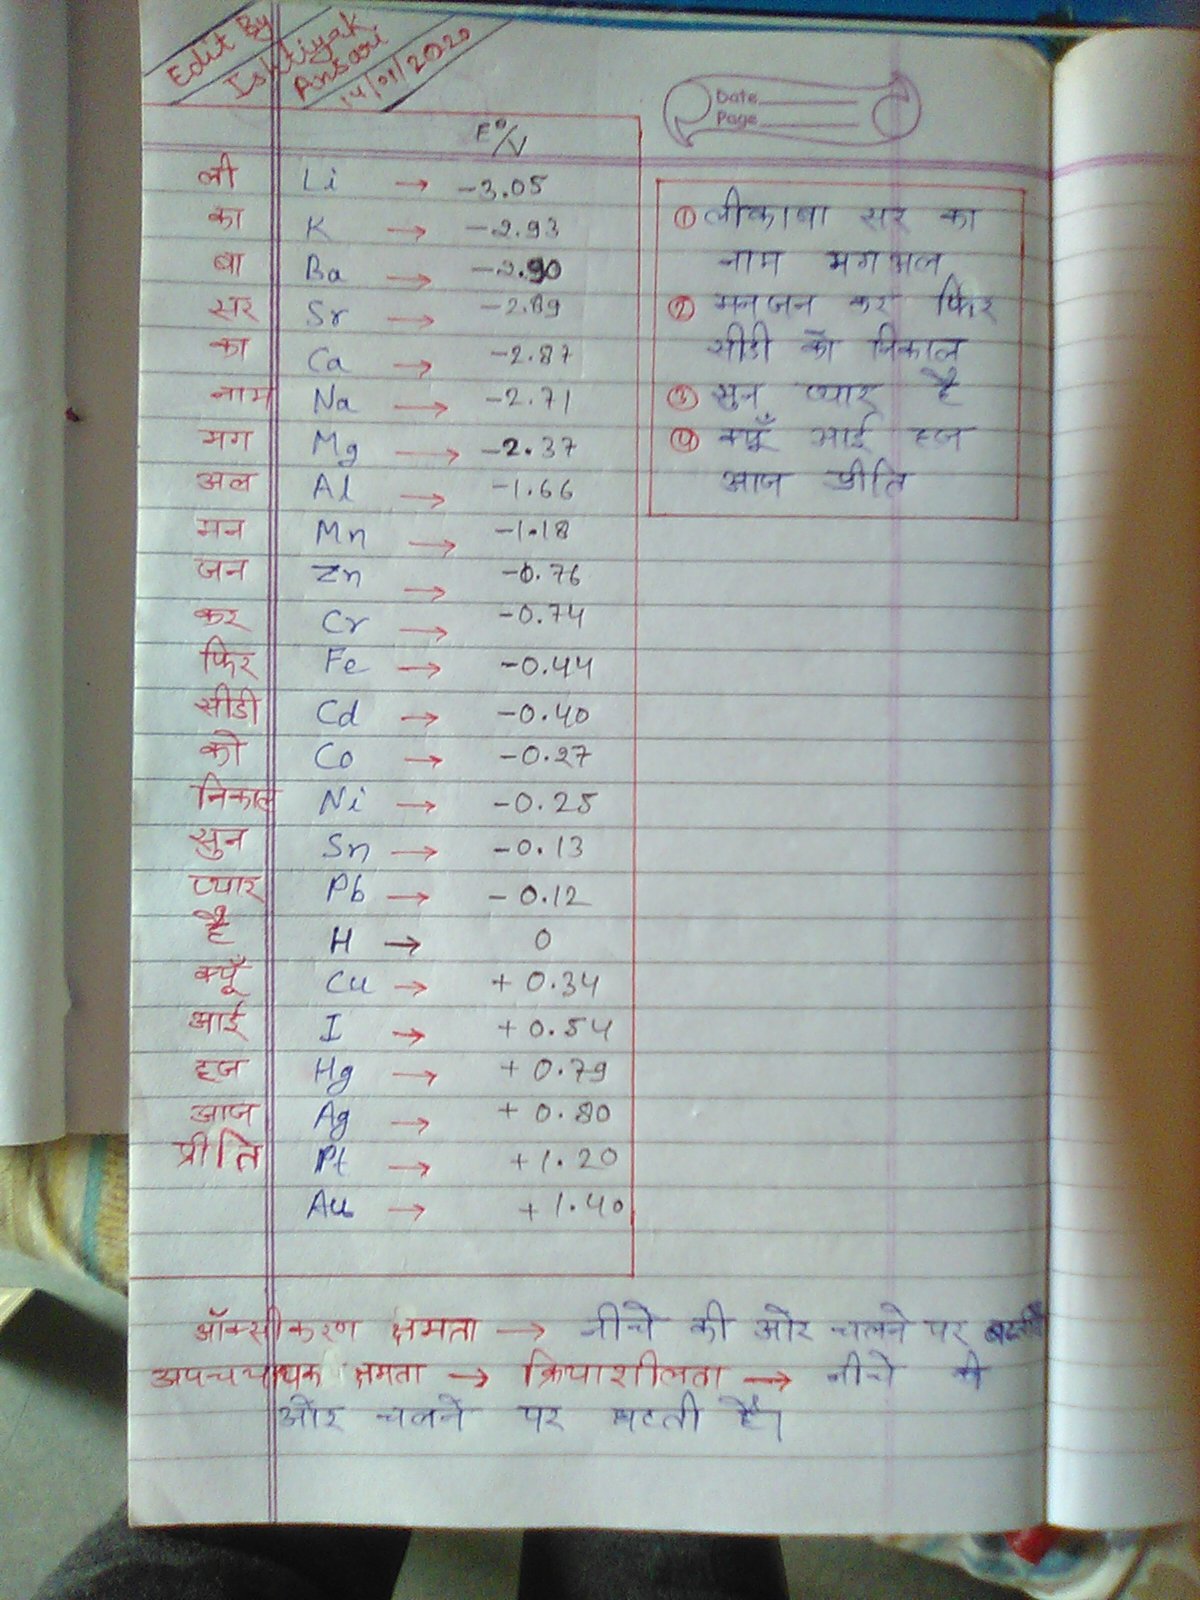 Edit By
Ishtiyak
Ansari
14/01/2020
Date
Page
E°/V
ली Li → -3.05
का K → -2.93
बा Ba → -2.90
सर Sr → -2.89
का Ca → -2.87
नाम Na → -2.71
मग Mg → -2.37
अल Al → -1.66
मन Mn → -1.18
जन Zn → -0.76
कर Cr → -0.74
फिर Fe → -0.44
सीडी Cd → -0.40
को Co → -0.27
निकाल Ni → -0.25
सुन Sn → -0.13
प्यार Pb → -0.12
है H → 0
क्यूँ Cu → +0.34
आई I → +0.54
हज Hg → +0.79
आज Ag → +0.80
प्रीति Pt → +1.20
Au → +1.40
① लीकाबा सर का
नाम मगअल
② मनजन कर फिर
सीडी को निकाल
③ सुन प्यार है
④ क्यूँ आई हज
आज प्रीति
ऑक्सीकरण क्षमता → नीचे की ओर चलने पर
क्षमता → क्रियाशीलता → नीचे की
ओर चलने पर घटती है।